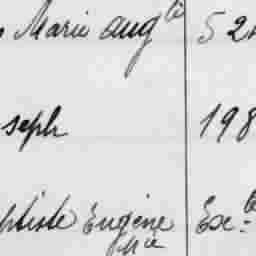 Marie Aug^te 52
seph 198
ptiste Eugène Ex^te
M^ie